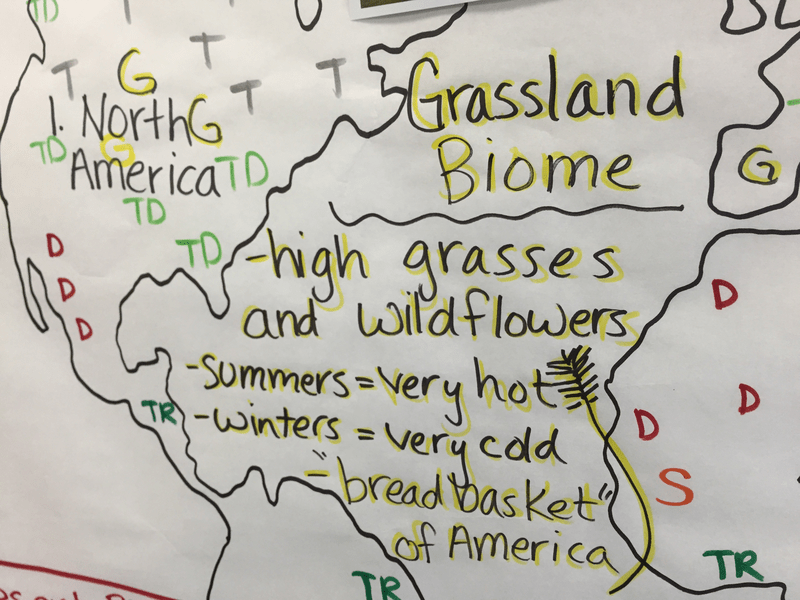 TD
T
T
G
T
T
1. North G
TD
G
America TD
TD
TD
D
D
D
TR
Grassland
Biome
-high grasses
and wildflowers
-Summers = very hot
-winters = very cold
-"breadbasket"
of America
G
D
D
D
S
TR
TR